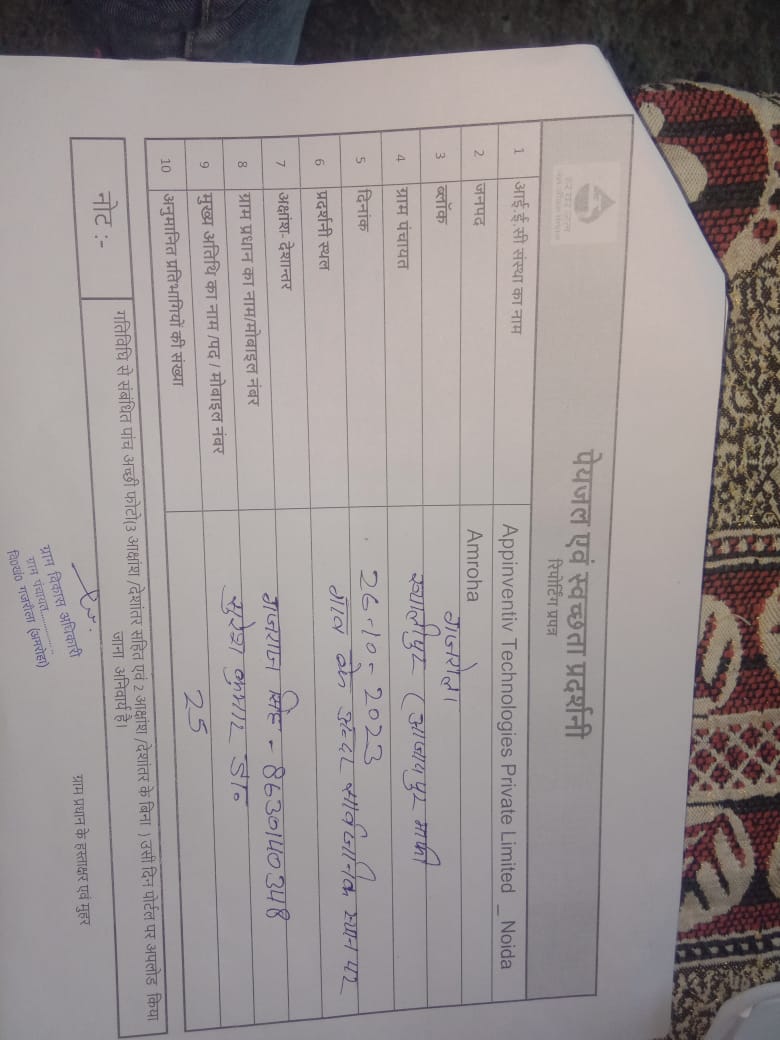 पेयजल एवं स्वच्छता प्रदर्शनी
रिपोर्टिंग प्रपत्र
1 आई.ई.सी संस्था का नाम Appinventiv Technologies Private Limited _ Noida
2 जनपद Amroha
3 ब्लॉक गजरौला
4 ग्राम पंचायत
5 दिनांक 26-10-2023
6 प्रदर्शनी स्थल गांव के अन्दर सार्वजनिक स्थान पर
7 अक्षांश- देशान्तर
8 ग्राम प्रधान का नाम/मोबाइल नंबर गजराज सिंह - 8630140348
9 मुख्य अतिथि का नाम /पद / मोबाइल नंबर सुरेश कुमार
10 अनुमानित प्रतिभागियों की संख्या 25
नोट :- गतिविधि से संबंधित पांच अच्छी फोटो(3 आक्षांश /देशांतर सहित एवं 2 आक्षांश /देशांतर के बिना ) उसी दिन पोर्टल पर अपलोड किया
जाना अनिवार्य है।
ग्राम प्रधान के हस्ताक्षर एवं मुहर
ग्राम विकास अधिकारी
ग्राम पंचायत..............
वि०खं० गजरौला (अमरोहा)